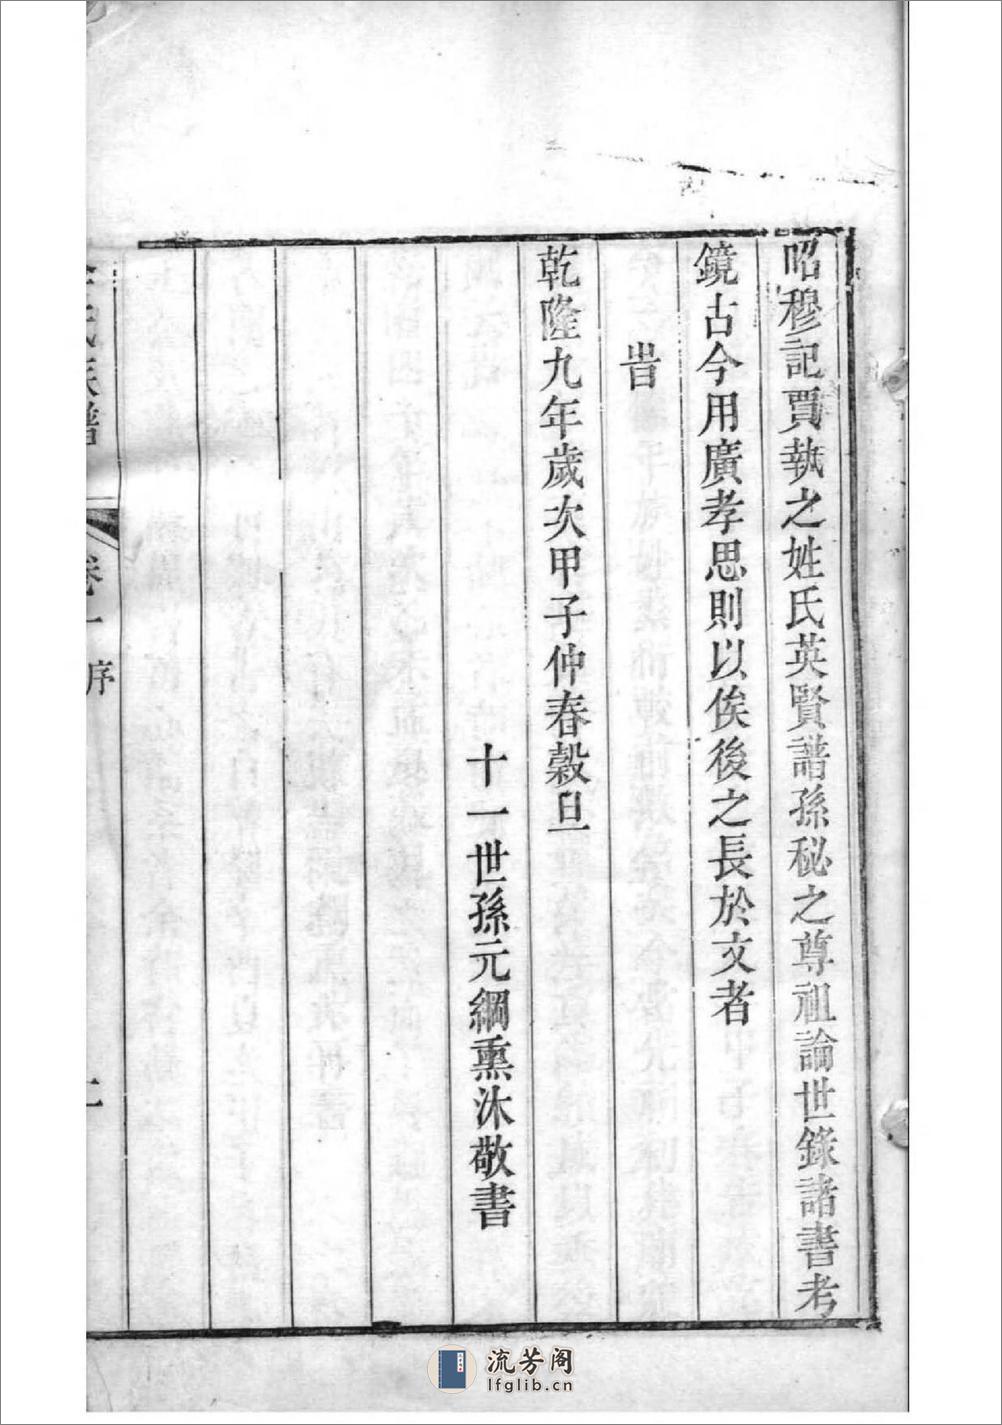 昭穆記賈執之姓氏英賢譜孫秘之尊祖論世錄諸書考
鏡古今用廣孝思則以俟後之長於文者
旹
乾隆九年歲次甲子仲春穀旦
十一世孫元綱熏沐敬書
氏族譜 卷一 序
流芳阁
lfglib.cn